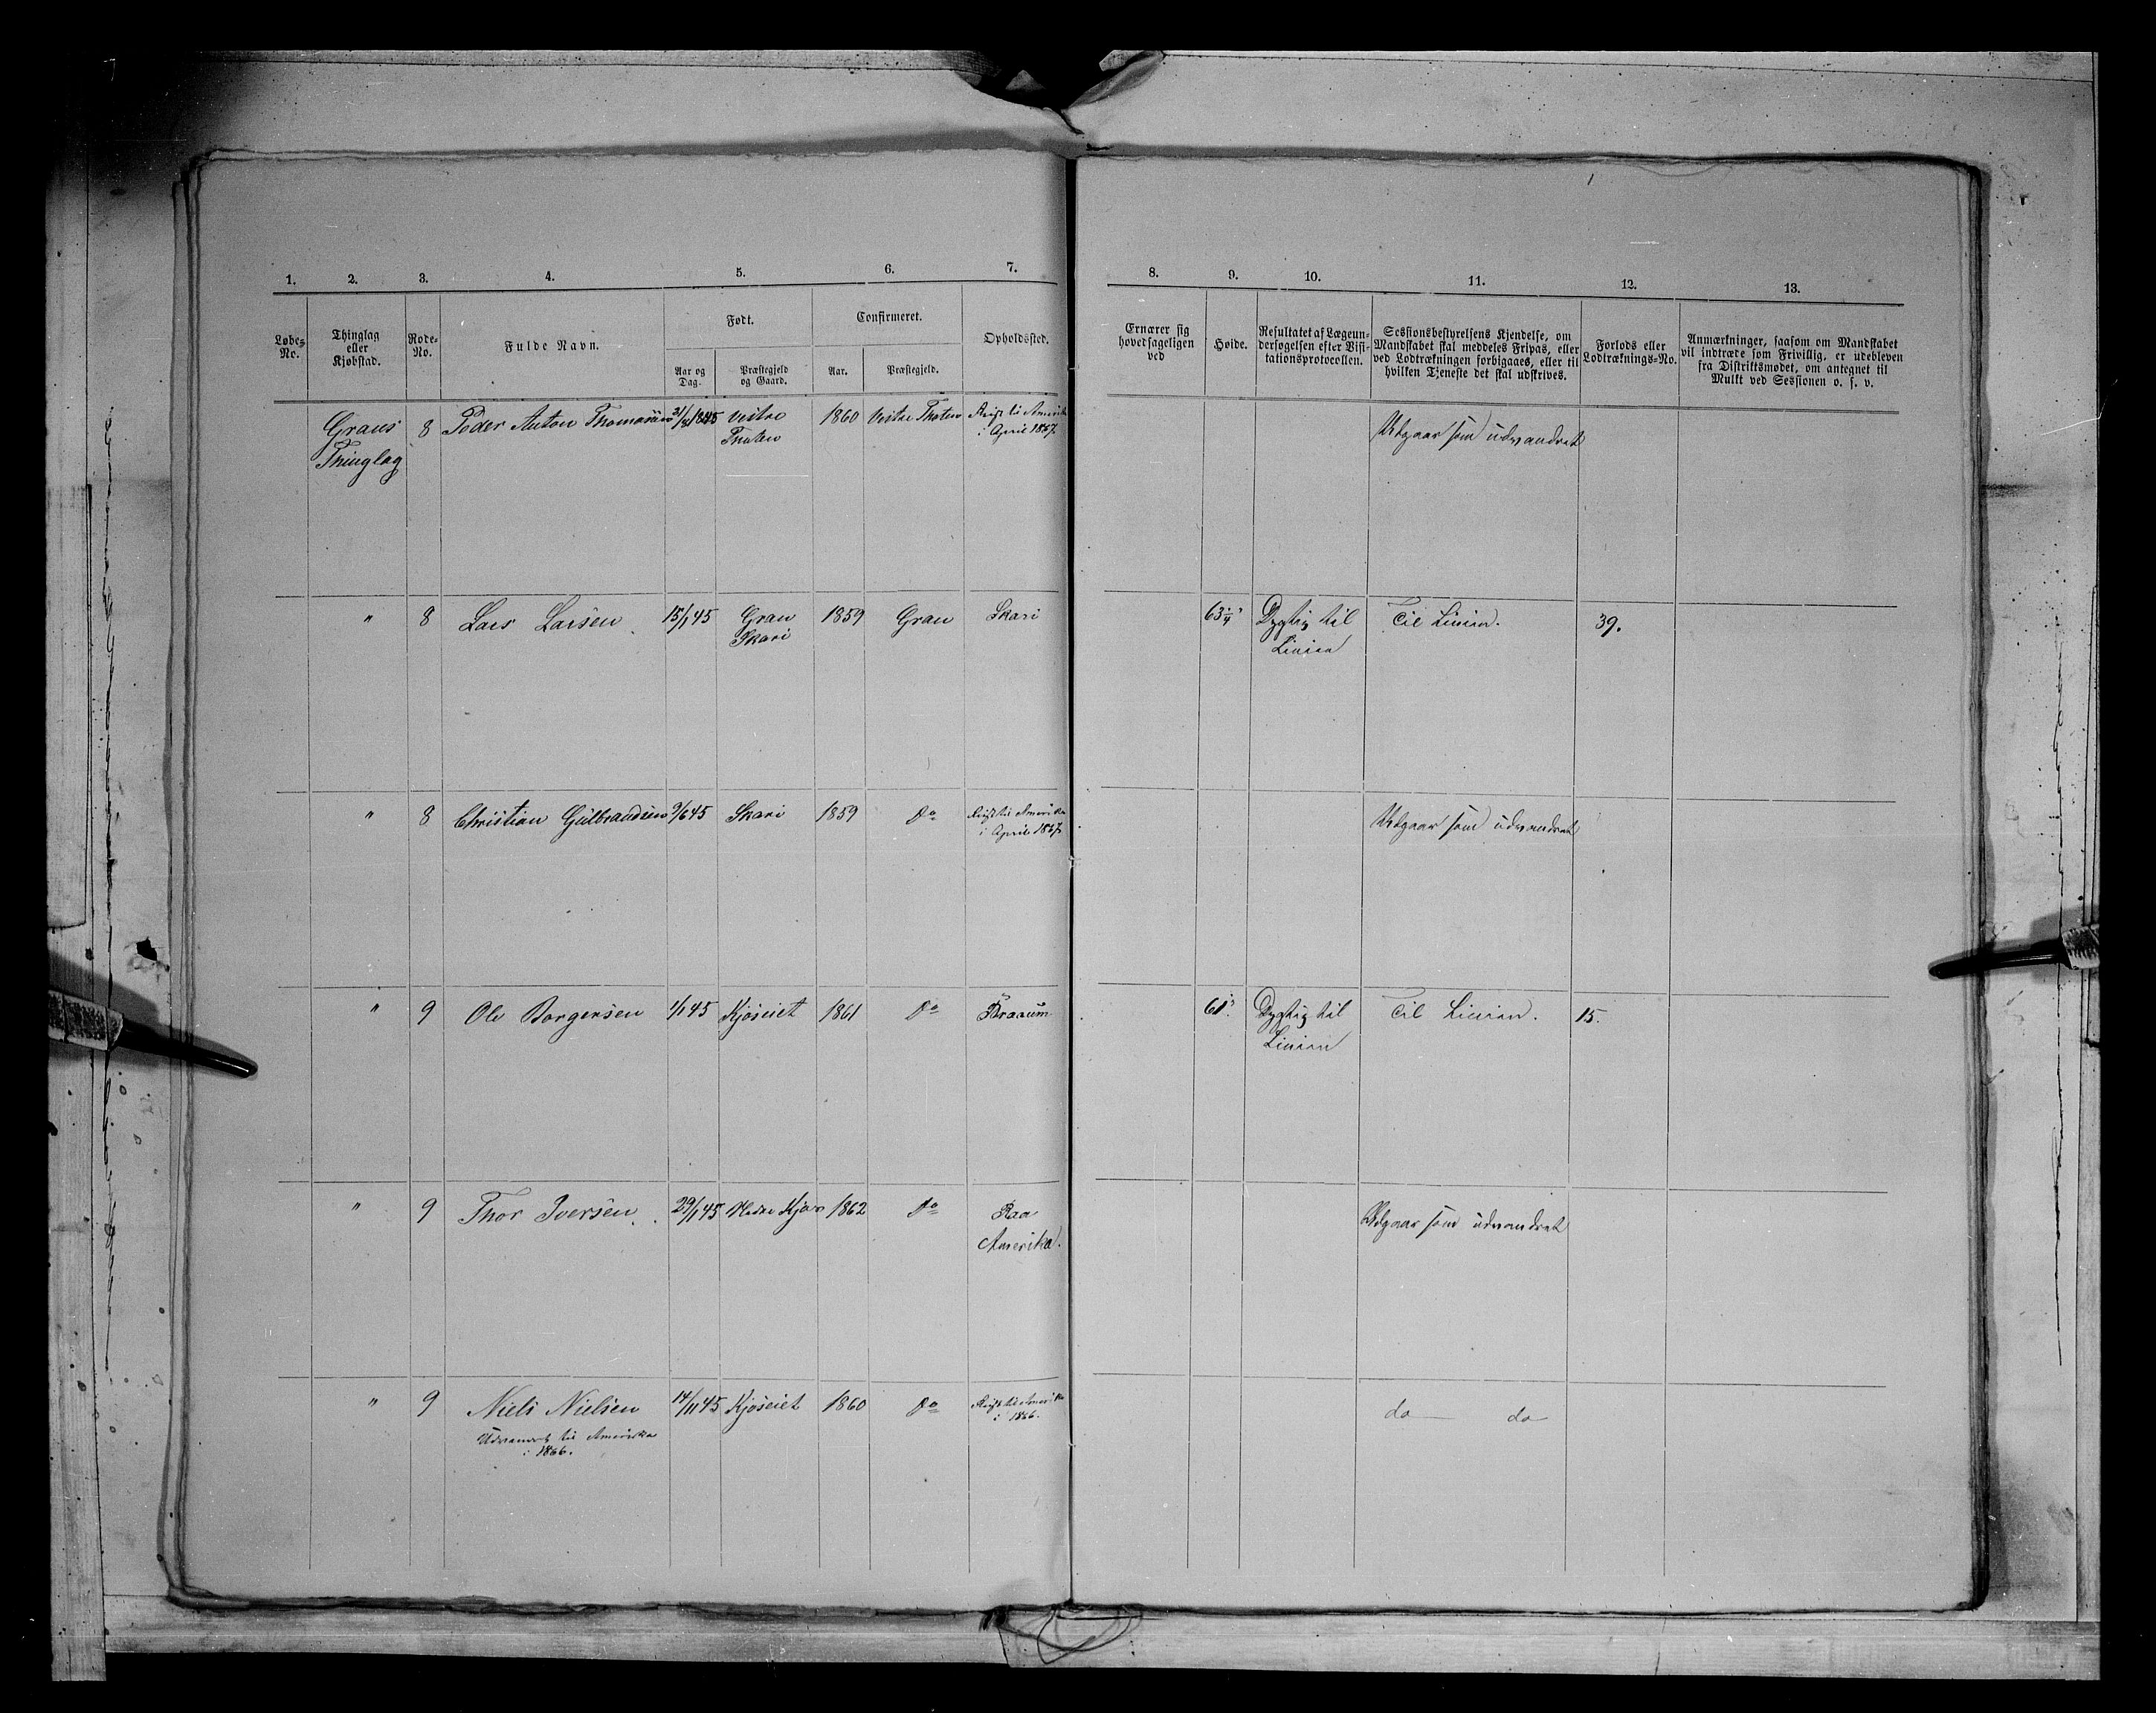 1. 2. 3. 4. 5. 6. 7. 8. 9. 10. 11. 12. 13.
Løbe-No.
Thinglag eller Kjøbstad.
Rode-No.
Fulde Navn.
Født.
Aar og Dag.
Præstegjeld og Gaard.
Confirmeret.
Aar.
Præstegjeld.
Opholdssted.
Ernærer sig hovedsageligen ved
Høide.
Resultatet af Lægeundersøgelsen efter Visitationsprotocollen.
Sessionsbestyrelsens Kjendelse, om Mandskabet skal meddeles Fripas, eller ved Lodtrækningen forbigaaes, eller til hvilken Tjeneste det skal udskrives.
Forlods eller Lodtræknings-No.
Anmærkninger, saasom om Mandskabet vil indtræde som Frivillig, er udebleven fra Distriktsmødet, om antegnet til Mulkt ved Sessionen o. s. v.
Grans 8 Peder Anton Thomasen 1845 Vestre 1860 Vestre Thoten Reist til Amerika Udgaar som udvandret
Thinglag Thoten i April 1867
" 8 Lars Larsen 15/1 45 Gran 1859 Gran Skari 63 1/4" Dygtig til Til Linien. 39.
Skari Linien
" 8 Christian Gulbrandsen 9/6 45 Skari 1859 Do Reist til Amerika Udgaar som udvandret
i April 1867
" 9 Ole Borgersen 1/1 45 Kjøseiet 1861 Do Braaum 61" Dygtig til Til Linien. 15.
Linien
" 9 Thor Iversen 29/1 45 1862 Do Raa Udgaar som udvandret
Amerika.
" 9 Niels Nielsen 14/11 45 Kjøseiet 1860 Do Reist til Amerika do do
Udvandret til Amerika i 1866.
i 1866.